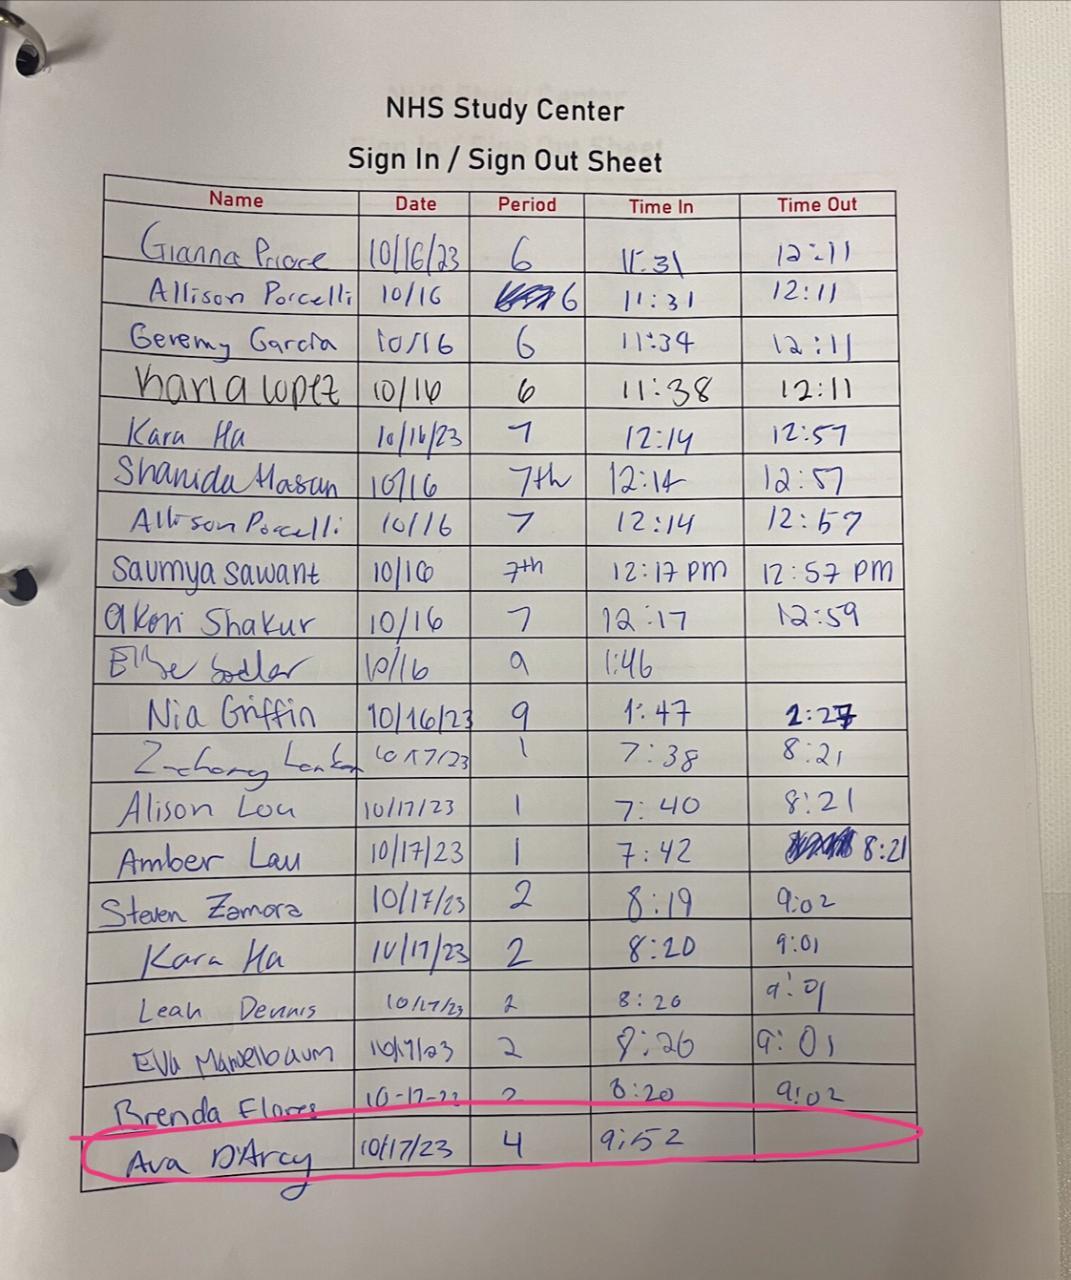 NHS Study Center
Sign In / Sign Out Sheet
Name Date Period Time In Time Out
Gianna Priore 10/16/23 6 11:31 12:11
Allison Porcelli 10/16 6 11:31 12:11
Geremy Garcia 10/16 6 11:34 12:11
Karla Lopez 10/16 6 11:38 12:11
Kara Ha 10/16/23 7 12:14 12:57
Shanida Hasan 10/16 7th 12:14 12:57
Allison Porcelli 10/16 7 12:14 12:57
Saumya Sawant 10/16 7th 12:17 PM 12:57 PM
Akori Shakur 10/16 7 12:17 12:59
10/16 9 1:46
Nia Griffin 10/16/23 9 1:47 2:27
Zachary 10/17/23 1 7:38 8:21
Alison Lou 10/17/23 1 7:40 8:21
Amber Lau 10/17/23 1 7:42 8:21
Steven Zamora 10/17/23 2 8:19 9:02
Kara Ha 10/17/23 2 8:20 9:01
Leah Dennis 10/17/23 2 8:20 9:01
Eva Mandelbaum 10/17/23 2 8:20 9:01
Brenda Flores 10-17-23 2 8:20 9:02
Ava D'Arcy 10/17/23 4 9:52